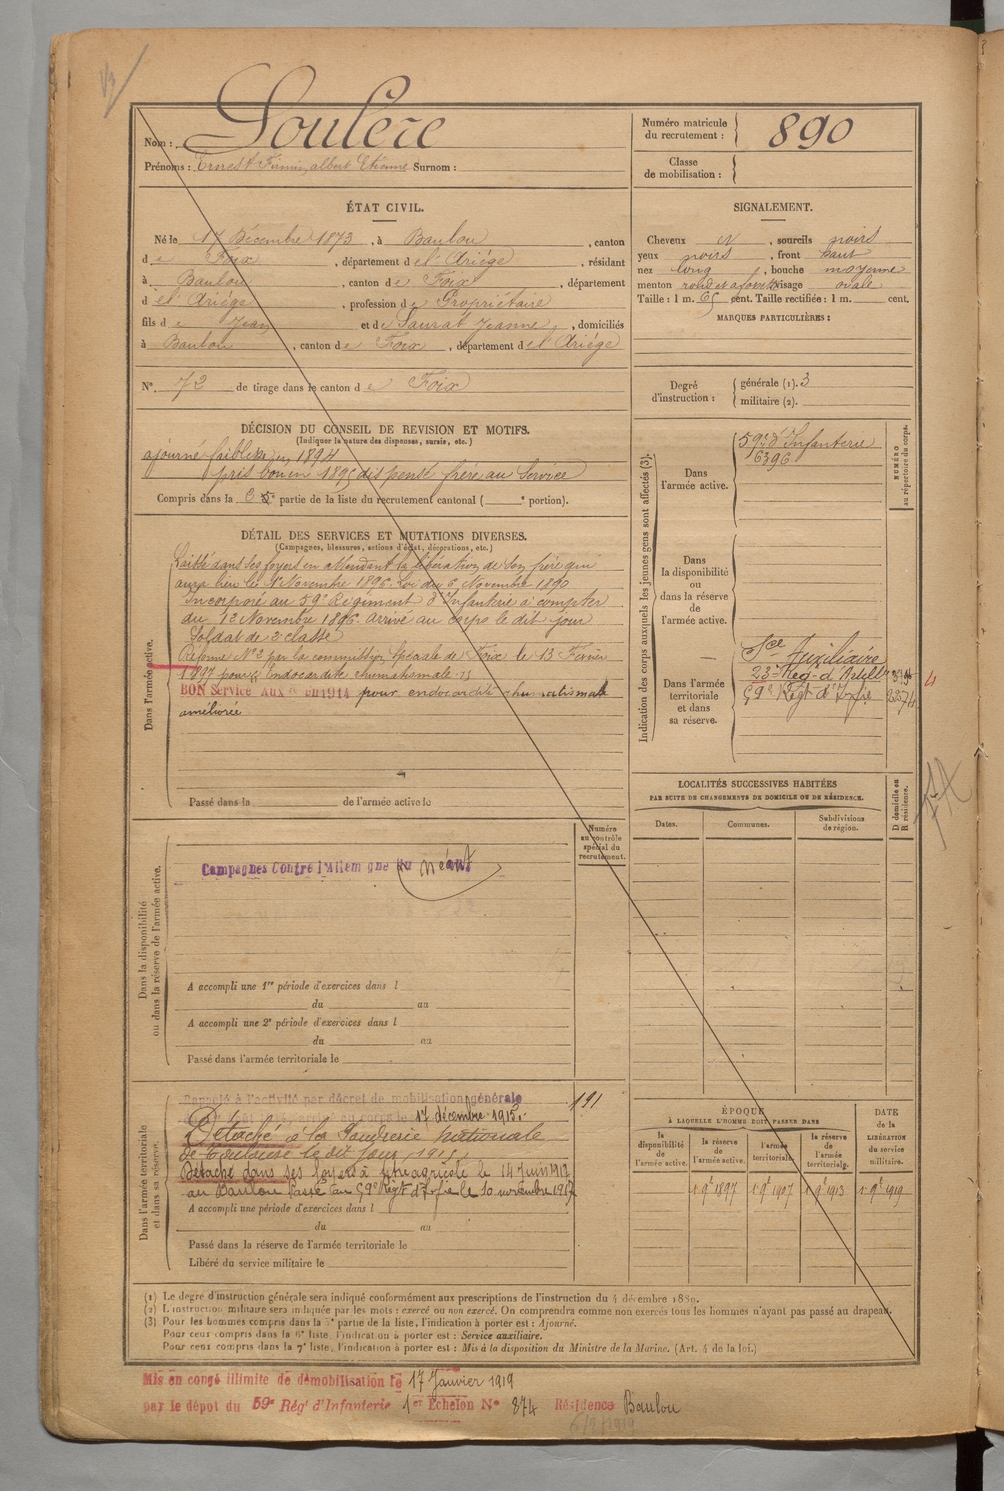 Nom : Soulère
Prénoms : Ernest Firmin, albert Etienne Surnom :
Numéro matricule du recrutement : 890
Classe de mobilisation :
ÉTAT CIVIL.
Né le 17 Décembre 1873, à Baulou, canton
de Foix, département de l'Ariége, résidant
à Baulou, canton de Foix, département
d el'Ariége, profession de Propriétaire
fils de Jean et de Saurat Jeanne, domiciliés
à Baulou, canton de Foix, département de l'Ariége
N° 72 de tirage dans le canton de Foix
SIGNALEMENT.
Cheveux N, sourcils noirs
yeux noirs, front haut
nez long, bouche moyenne
menton rond et à fossette visage ovale
Taille : 1 m. 65 cent. Taille rectifiée : 1 m. cent.
MARQUES PARTICULIÈRES :
Degré d'instruction : générale (1). 3
militaire (2).
DÉCISION DU CONSEIL DE REVISION ET MOTIFS.
(Indiquer la nature des dispenses, sursis, etc.)
ajourné faiblesse, en 1894
pris bon en 1895 dispensé frère au Service
Compris dans la partie de la liste du recrutement cantonal ( portion).
DÉTAIL DES SERVICES ET MUTATIONS DIVERSES.
(Campagnes, blessures, actions d'éclat, décorations, etc.)
Dans l'armée active.
Laissé dans ses foyers en attendant la libération de son frère qui
aura lieu le 1 Novembre 1896. Loi du 6 Novembre 1890
Incorporé au 59e Régiment d'Infanterie à compter
du 12 Novembre 1896. arrivé au corps le dit jour
Soldat de 2e classe
Réformé N° 2 par la commission spéciale de Foix le 13 Février
1897 pour Endocardite rhumatismale.
BON Service Aux en 1914 pour endocardite rhumatismale
améliorée
Passé dans la de l'armée active le
Indication des corps auxquels les jeunes gens sont affectés (3).
NUMÉRO au répertoire du corps.
Dans l'armée active.
59e d'Infanterie
6396
Dans la disponibilité ou dans la réserve de l'armée active.
Dans l'armée territoriale et dans sa réserve.
Sce Auxiliaire
23e Reg. d'Artillie
59e Regt d'Infie
LOCALITÉS SUCCESSIVES HABITÉES
PAR SUITE DE CHANGEMENTS DE DOMICILE OU DE RÉSIDENCE.
Dates. Communes. Subdivisions de région. D domicile ou R résidence.
Dans la disponibilité ou dans la réserve de l'armée active.
Numéro au contrôle spécial du recrutement.
Campagnes Contre l'Allemagne du Néant
A accompli une 1re période d'exercices dans l
du au
A accompli une 2e période d'exercices dans l
du au
Passé dans l'armée territoriale le
Dans l'armée territoriale et dans sa réserve.
Rappelé à l'activité par décret de mobilisation générale
arrivé au corps le 17 décembre 1915.
Détaché à la Poudrerie Nationale
de Toulouse le dit jour 1915.
Détaché dans ses foyers à titre agricole le 14 Juin 1917
au Baulou Passé au 59e Régt d'Infie le 10 novembre 1917
191
A accompli une période d'exercices dans l
du au
Passé dans la réserve de l'armée territoriale le
Libéré du service militaire le
ÉPOQUE
A LAQUELLE L'HOMME DOIT PASSER DANS
DATE de la LIBÉRATION du service militaire.
la disponibilité de l'armée active. la réserve de l'armée active. l'armée territoriale. la réserve de l'armée territoriale.
1 9e 1897 1 9e 1907 1 9e 1913 1 9e 1919
(1) Le degré d'instruction générale sera indiqué conformément aux prescriptions de l'instruction du 4 décembre 1889.
(2) L'instruction militaire sera indiquée par les mots : exercé ou non exercé. On comprendra comme non exercés tous les hommes n'ayant pas passé au drapeau.
(3) Pour les hommes compris dans la 5e partie de la liste, l'indication à porter est : Ajourné.
Pour ceux compris dans la 6e liste, l'indication à porter est : Service auxiliaire.
Pour ceux compris dans la 7e liste, l'indication à porter est : Mis à la disposition du Ministre de la Marine. (Art. 4 de la loi.)
Mis en congé illimité de démobilisation le 17 Janvier 1919
par le dépot du 59e Rég' d'Infanterie 1er Echelon N° 874 Résidence Baulou